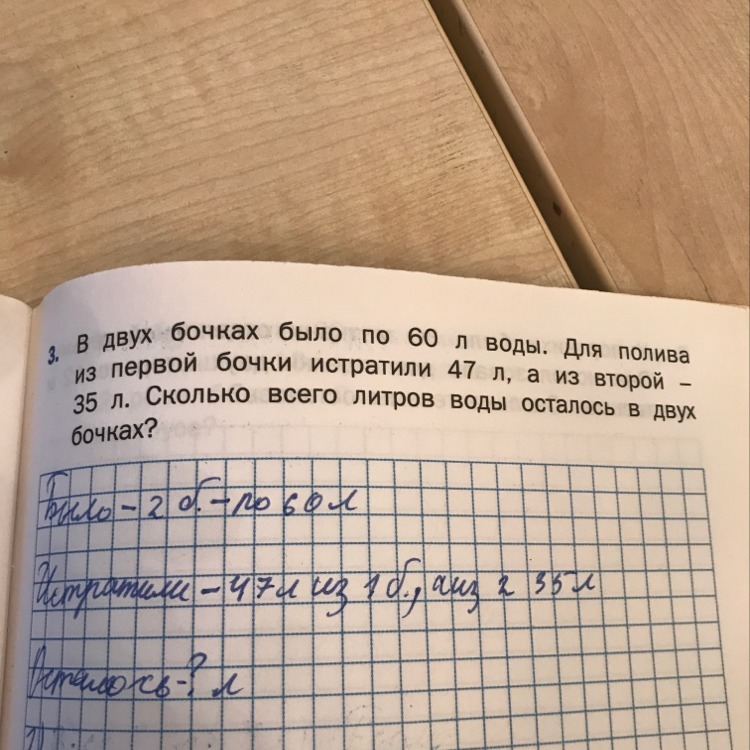 3. В двух бочках было по 60 л воды. Для полива
из первой бочки истратили 47 л, а из второй –
35 л. Сколько всего литров воды осталось в двух
бочках?
Было – 2 б. – по 60 л
Истратили – 47 л из 1 б., а из 2 35 л
Осталось - ? л